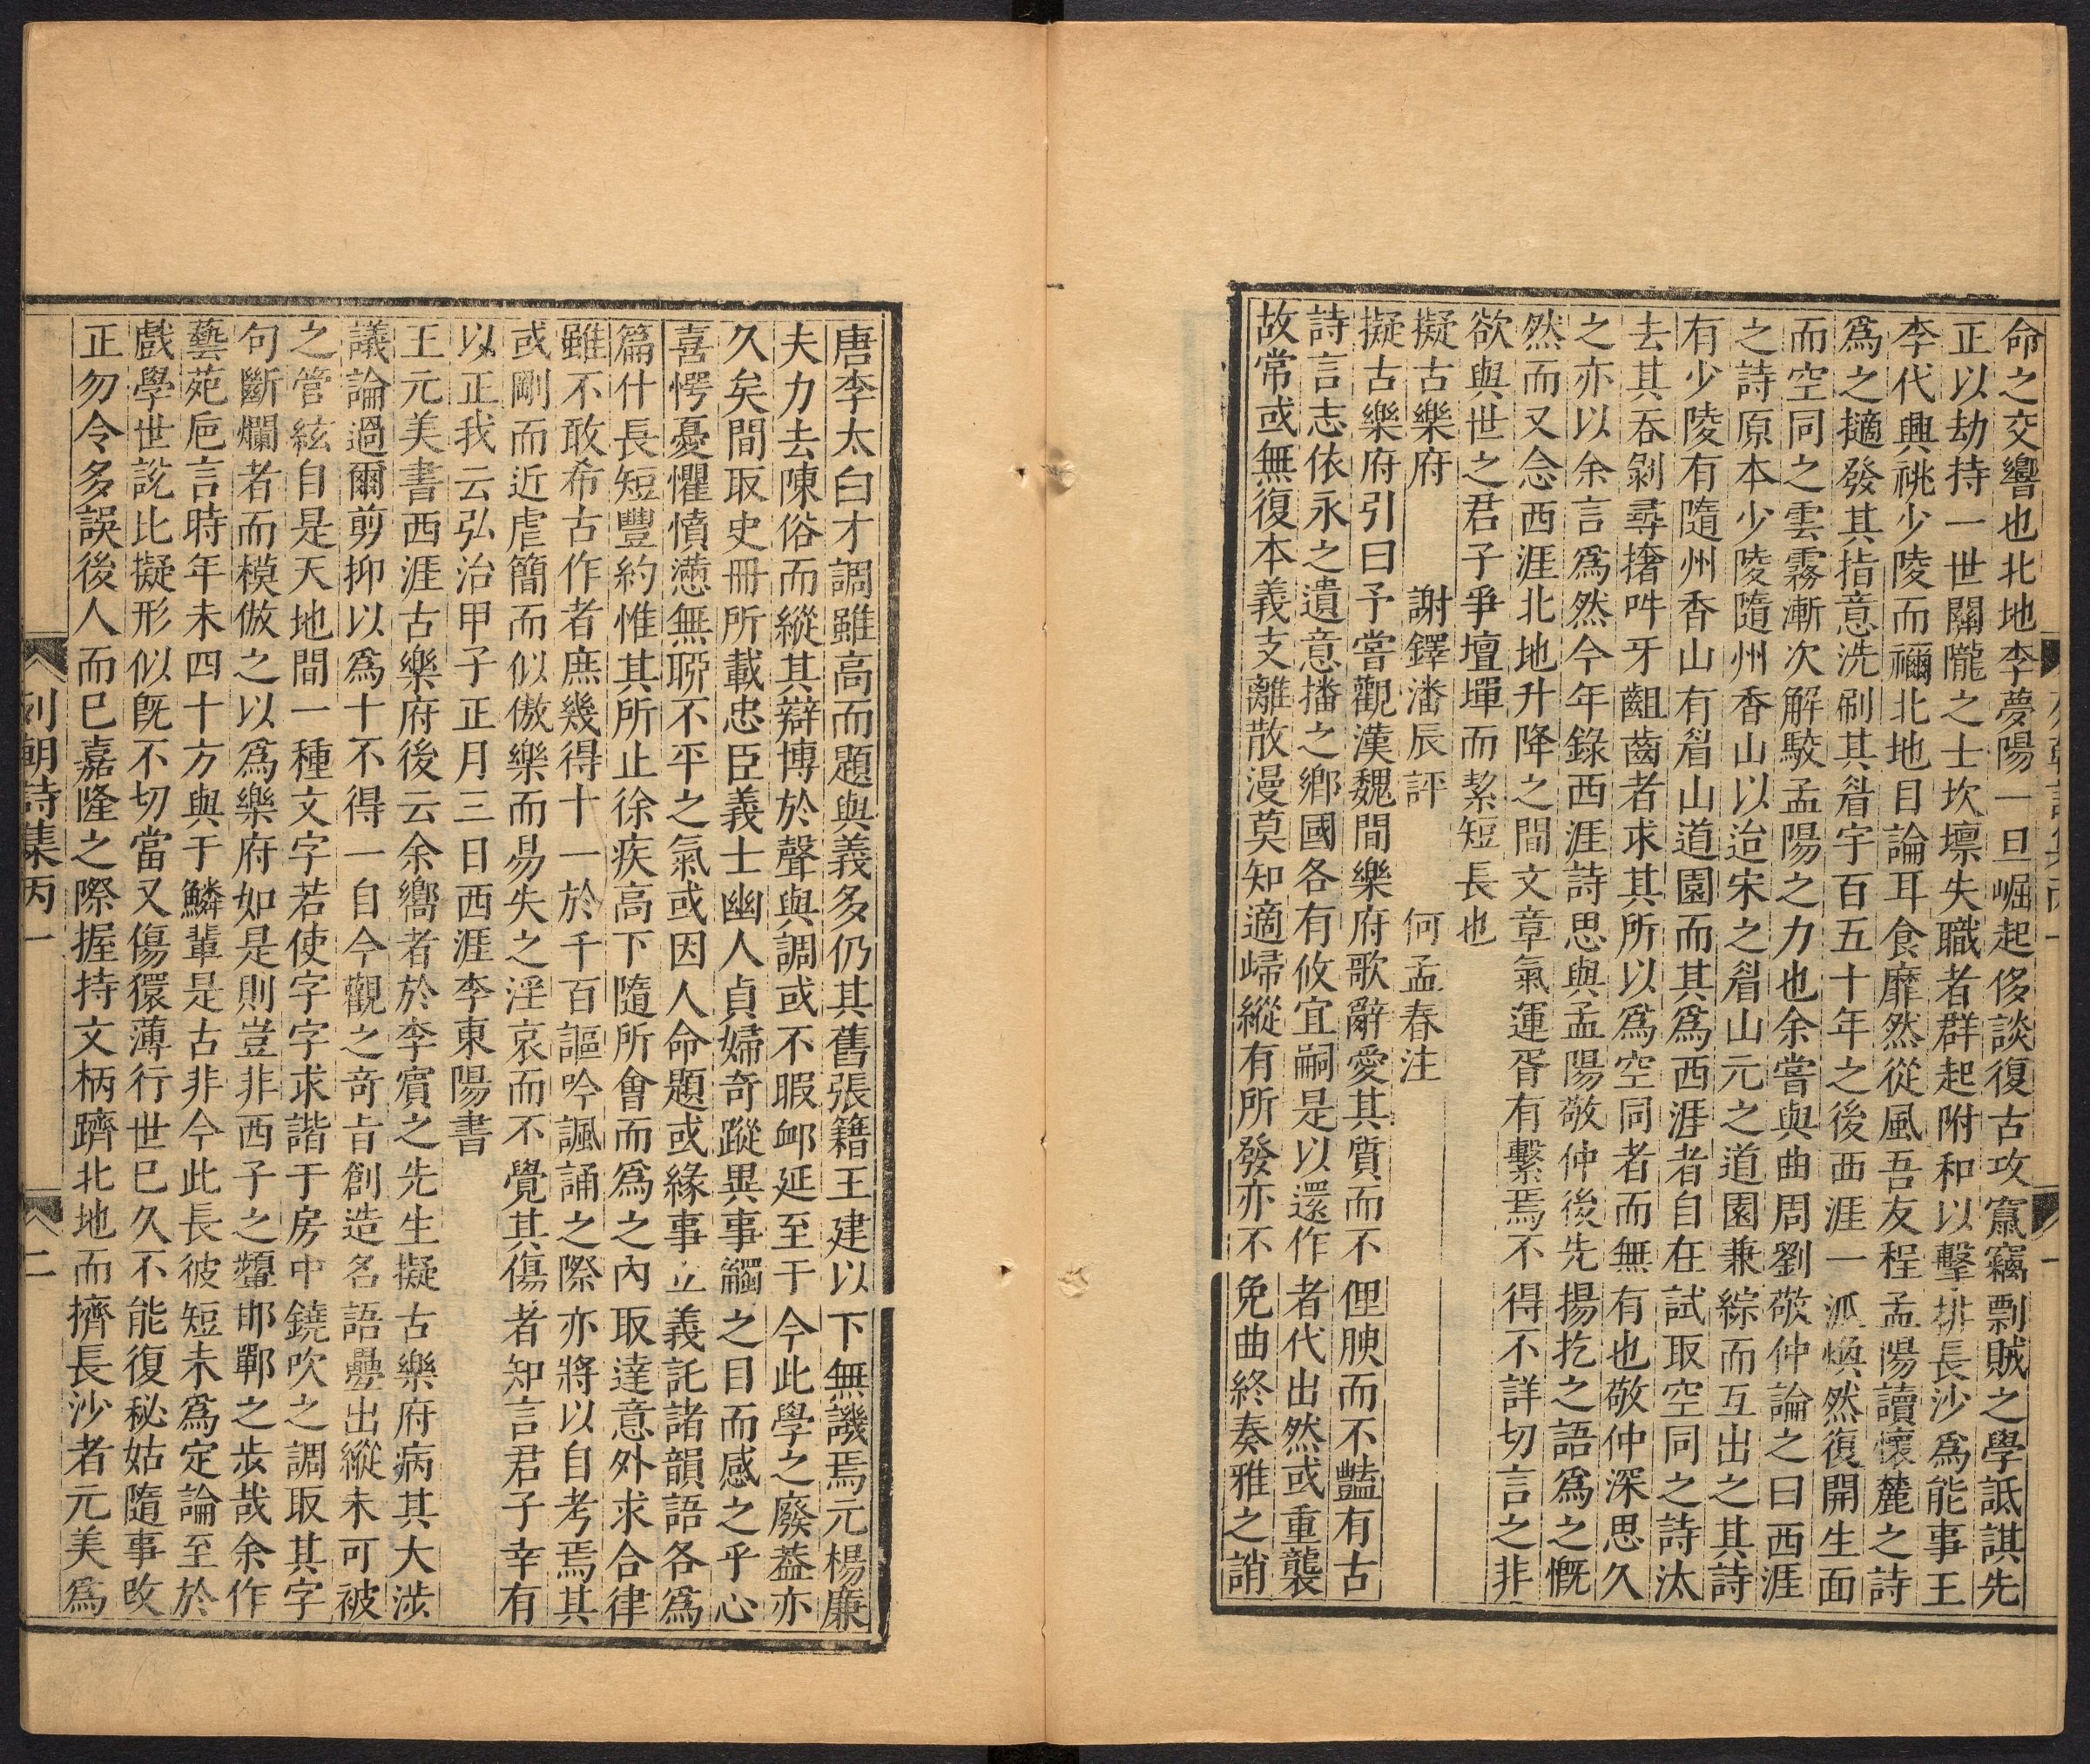 命之交響也北地李夢陽一旦崛起侈談復古攻竄竊剽賊之學詆諆先
正以劫持一世關隴之士坎壈失職者群起附和以擊排長沙爲能事王
李代興祧少陵而禰北地目論耳食靡然從風吾友程孟陽讀懷麓之詩
爲之擿發其指意洗刷其眢宇百五十年之後西涯一派煥然復開生面
而空同之雲霧漸次解駮孟陽之力也余嘗與曲周劉敬仲論之曰西涯
之詩原本少陵隨州香山以迨宋之眉山元之道園兼綜而互出之其詩
有少陵有隨州香山有眉山道園而其爲西涯者自在試取空同之詩汰
去其吞剝尋撦吽牙齟齒者求其所以爲空同者而無有也敬仲深思久
之亦以余言爲然今年錄西涯詩思與孟陽敬仲後先揚扢之語爲之慨
然而又念西涯北地升降之間文章氣運胥有繫焉不得不詳切言之非
欲與世之君子爭壇墠而絜短長也
擬古樂府　謝鐸潘辰評　何孟春注
擬古樂府引曰予嘗觀漢魏間樂府歌辭愛其質而不俚腴而不豔有古
詩言志依永之遺意播之鄉國各有攸宜嗣是以還作者代出然或重襲
故常或無復本義支離散漫莫知適歸縱有所發亦不免曲終奏雅之誚
唐李太白才調雖高而題與義多仍其舊張籍王建以下無譏焉元楊廉
夫力去陳俗而縱其辯博於聲與調或不暇卹延至于今此學之廢葢亦
久矣間取史冊所載忠臣義士幽人貞婦奇蹤異事觸之目而感之乎心
喜愕憂懼憤懣無聊不平之氣或因人命題或緣事立義託諸韻語各爲
篇什長短豐約惟其所止徐疾高下隨所會而爲之內取達意外求合律
雖不敢希古作者庶幾得十一於千百謳吟諷誦之際亦將以自考焉其
或剛而近虐簡而似傲樂而易失之淫哀而不覺其傷者知言君子幸有
以正我云弘治甲子正月三日西涯李東陽書
王元美書西涯古樂府後云余嚮者於李賓之先生擬古樂府病其大涉
議論過爾剪抑以爲十不得一自今觀之奇旨創造名語疊出縱未可被
之管絃自是天地間一種文字若使字字求諧于房中鐃吹之調取其字
句斷爛者而模倣之以爲樂府如是則豈非西子之顰邯鄲之步哉余作
藝苑巵言時年未四十方與于鱗輩是古非今此長彼短未爲定論至於
戲學世說比擬形似旣不切當又傷儇薄行世巳久不能復秘姑隨事改
正勿令多誤後人而巳嘉隆之際握持文柄躋北地而擠長沙者元美爲
列朝詩集丙一
二